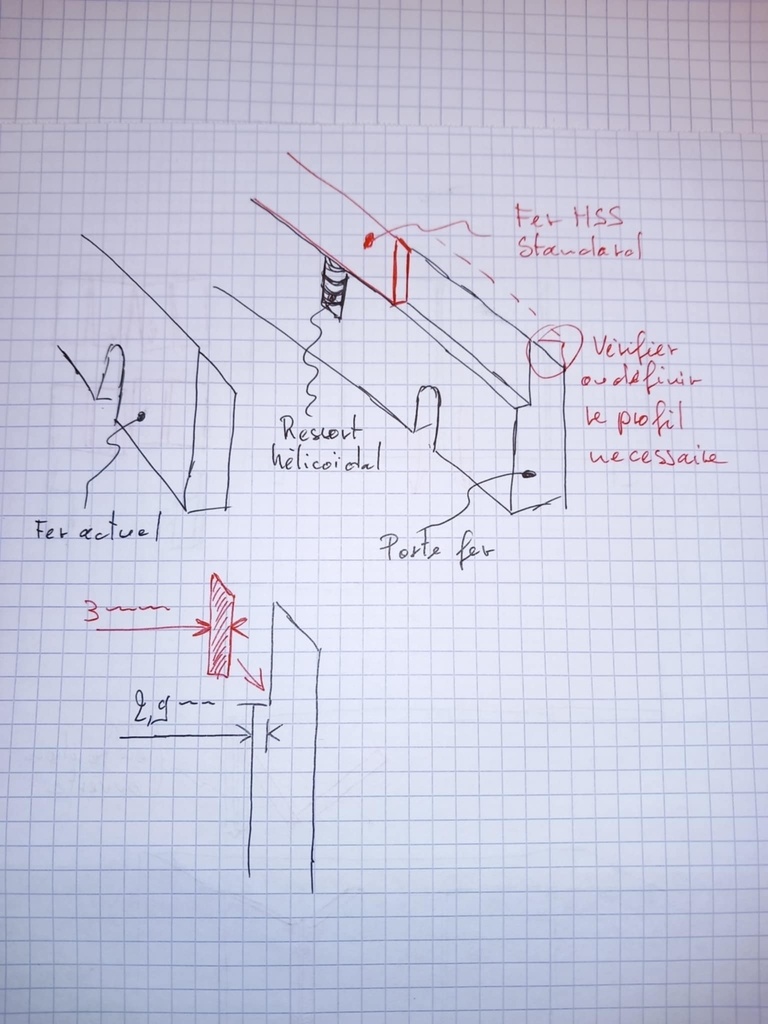 Fer HSS
Standard
Vérifier
ou définir
le profil
necessaire
Ressort
hélicoïdal
Fer actuel
Porte fer
3 mm
2,9 mm